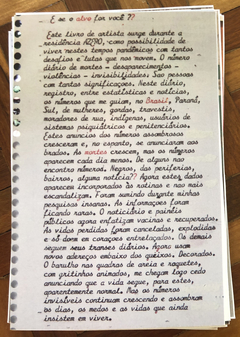 E se o alvo for você ??
Este livro de artista surge durante a
residência AZ90, como possibilidade de
viver nestes tempos pandêmicos com tantos
desafios e lutas que nos movem. O número
diário de mortes - desaparecimentos -
violências - invisibilidades. São pessoas
com tantas significações. Neste diário,
registro, entre estatísticas e notícias,
os números que me guiam, no Brasil, Paraná,
Sul, de mulheres, gordas, travestis,
moradores de rua, indígenas, usuários de
sistemas psiquiátricos e penitenciários.
Estes anúncios dos números assombrosos
cresceram e, no espanto, se anunciaram aos
brados. As mortes crescem, mas os números
aparecem cada dia menos. De alguns nao
encontro números. Negros, das periferias,
bairros, alguma notícia?? Agora estes dados
aparecem incorporados às rotinas e nao mais
escandalizam. Foram sumindo durante minhas
pesquisas insanas. As informaçoes foram
ficando raras. O noticiário e painéis
públicos agora enfatizam vacinas e recuperados.
As vidas perdidas foram canceladas, explodidas
e só doem em coraçoes entrelaçados. Os demais
seguem seus transes diários. Agora usam
novos adereços embaixo dos queixos. Decorados.
O barulho nas quadras de areia e raquetes,
com gritinhos animados, me chegam logo cedo
anunciando que a vida segue, para estes,
aparentemente normal. Mas os números
invisíveis continuam crescendo e assombram
os dias, os medos e as vidas que ainda
insistem em viver.